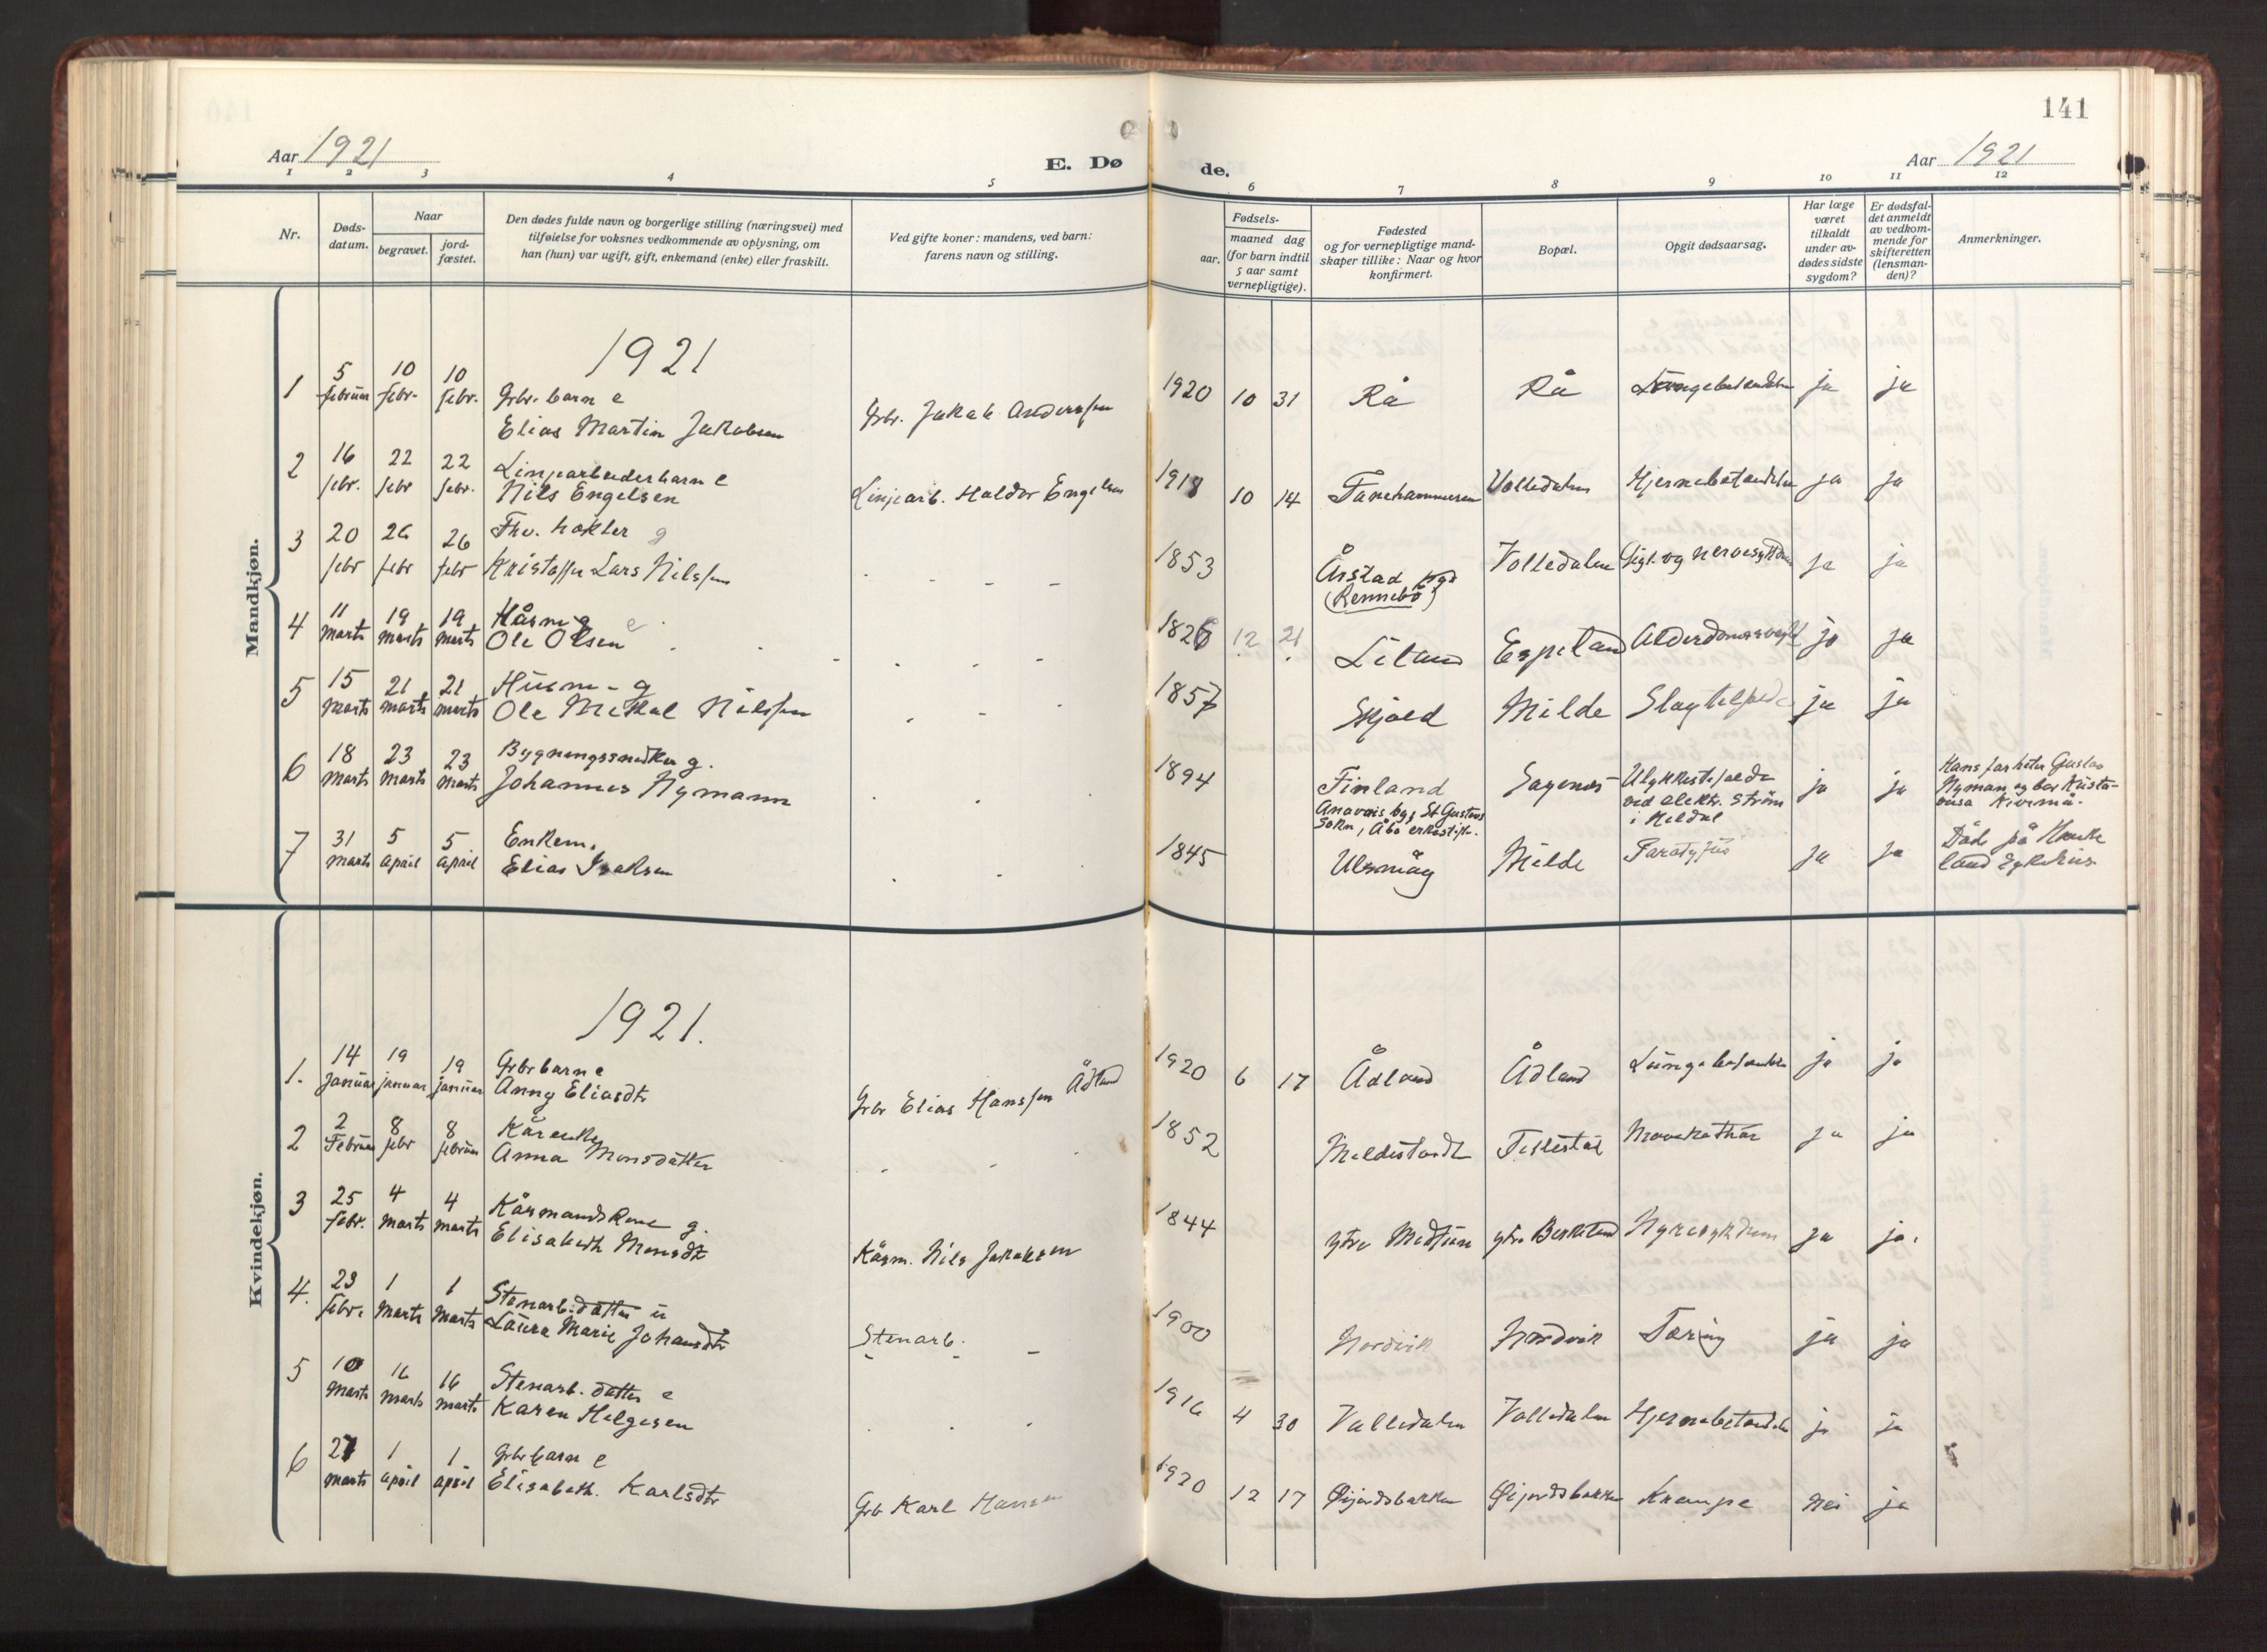 141
Aar 1921
E. Dø
de.
Aar 1921
1 2 3 4 5 6 7 8 9 10 11 12
Nr.
Døds-
datum.
Naar
begravet.
jord-
fæstet.
Den dødes fulde navn og borgerlige stilling (næringsvei) med
tilføielse for voksnes vedkommende av oplysning, om
han (hun) var ugift, gift, enkemand (enke) eller fraskilt.
Ved gifte koner: mandens, ved barn:
farens navn og stilling.
Fødsels-
aar.
maaned dag
(for barn indtil
5 aar samt
vernepligtige).
Fødested
og for vernepligtige mand-
skaper tillike: Naar og hvor
konfirmert.
Bopæl.
Opgit dødsaarsag.
Har læge
været
tilkaldt
under av-
dødes sidste
sygdom?
Er dødsfal-
det anmeldt
av vedkom-
mende for
skifteretten
(lensman-
den)?
Anmerkninger.
Mandkjøn.
1921
5 10 10
1 februar febr. febr. Grbr. barn e 1920 10 31 Rå Rå ja ja
Elias Martin Jakobsen Grbr. Jakob Anderssen
2 16 22 22 Linjearbeiderbarn e
febr. febr febr. Nils Engelsen Linjearb. Haldor Engelsen 1918 10 14 Fanehammeren Hjernebetændelse ja ja
3 20 26 26 Fhv. g
febr febr febr Kristoffer Lars Nilssen - - - - 1853 Årstad Volledalen og nervesygdom ja ja
4 11 19 19 e
marts marts marts Ole Olsen - - - 1826 12 21 Liland Espeland ja ja
5 15 21 21 Husm - g
marts marts marts Ole Mikal Nilssen - - - 1857 Skjold Milde ja ja
6 18 23 23 Bygningssnedker g.
marts marts marts Johannes Nymann - - 1894 Finland ja ja Hans far heter Gustav
St Gustavs ved elektr. strøm Nyman og bor
sokn, Åbo erkestift. i
7 31 5 5 Enkem.
marts april april Elias Isaksen - - 1845 Ulsmåg Milde Paratyfus ja ja Døde på Hauke
land sykehus
Kvindekjøn.
1921.
1. 14 19 19 Grbr barn e
januar januar januar Anny Eliasdtr Grbr Elias Hanssen Ådland 1920 6 17 Ådland Ådland Lungebetændelse ja ja
2 2 8 8
Februar febr februar Anna Monsdatter - - - 1852 ja ja
3 25 4 4 Kårmandskone g.
febr. marts marts Elisabeth Monsdtr Kårm. Nils Jakobsen 1844 ytre Midtun ytre Nyresykdom ja ja.
4. 23 1 1 Stenarb. datter u
febr. marts marts Laura Marie Johansdtr Stenarb. - - - 1900 Nordvik Nordvik Tæring ja ja
5 10 16 16 Stenarb. datter e
marts marts marts Karen Helgesen - - - 1916 4 30 Volledalen Volledalen Hjernebetændelse ja ja
6 27 1 1 Grbr barn e
marts april april Elisabeth Karlsdtr Grbr Karl Hansen 1920 12 17 Øijordsbakken Øijordsbakken Krampe nei ja